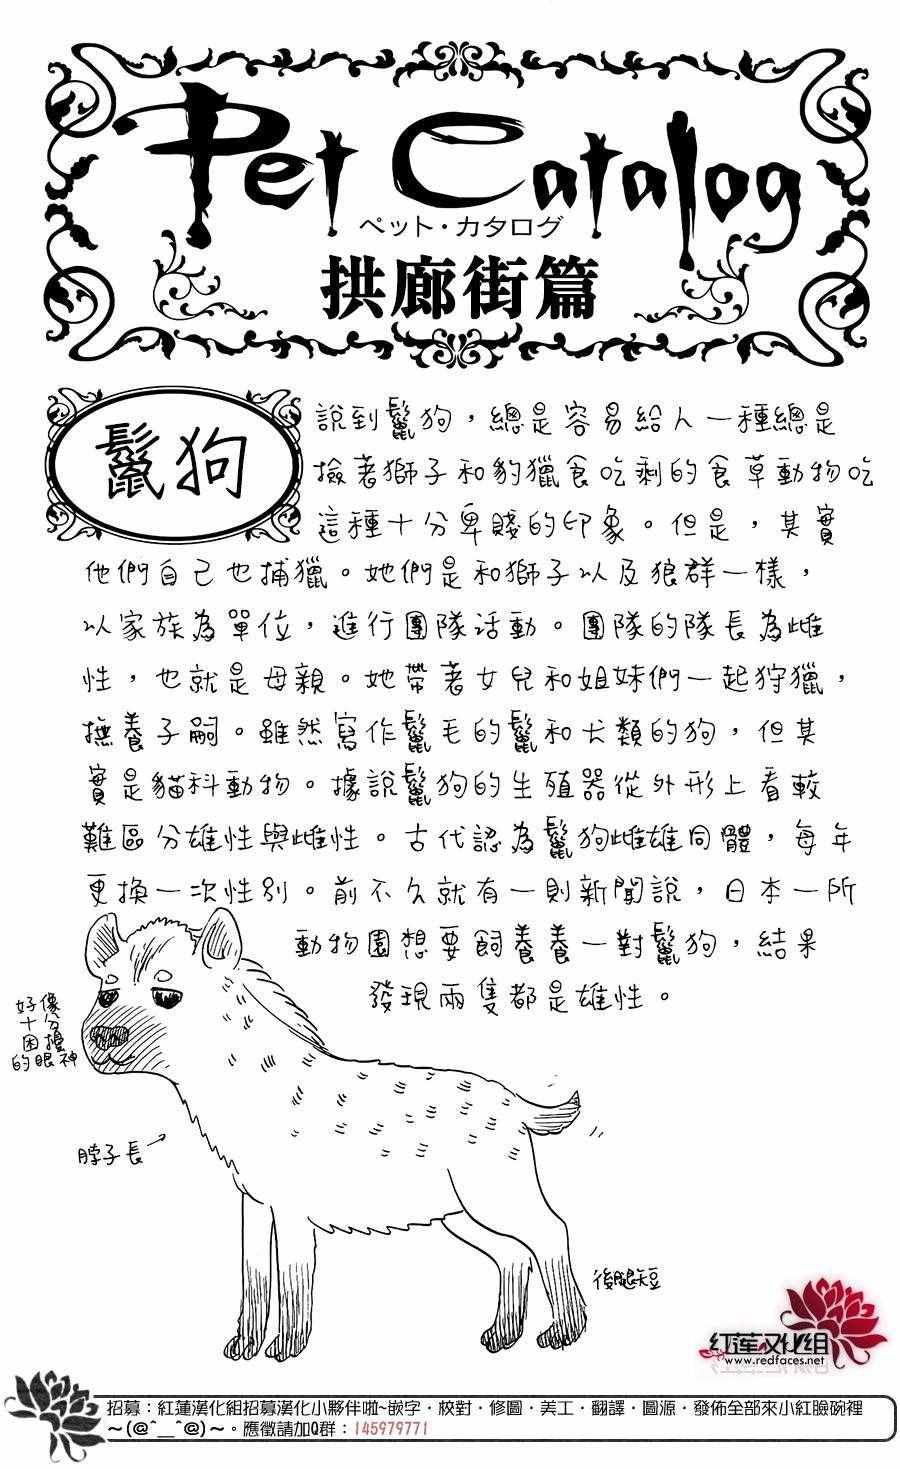 Pet Catalog
ペット・カタログ
拱廊街篇
鬣狗
說到鬣狗，總是容易給人一種總是
撿著獅子和豹獵食吃剩的食草動物吃
這種十分卑賤的印象。但是，其實
他們自己也捕獵。她們是和獅子以及狼群一樣，
以家族為單位，進行團隊活動。團隊的隊長為雌
性，也就是母親。她帶著女兒和姐妹們一起狩獵，
撫養子嗣。雖然寫作鬣毛的鬣和犬類的狗，但其
實是貓科動物。據說鬣狗的生殖器從外形上看較
難區分雄性與雌性。古代認為鬣狗雌雄同體，每年
更換一次性別。前不久就有一則新聞說，日本一所
動物園想要飼養養一對鬣狗，結果
發現兩隻都是雄性。
好像
十分
困擾
的眼神
脖子長
後腿短
紅蓮汉化组
www.redfaces.net
招募：紅蓮漢化組招募漢化小夥伴啦~嵌字・校對・修圖・美工・翻譯・圖源・發佈全部來小紅臉碗裡
～(@^__^@)～。應徵請加Q群：145979771